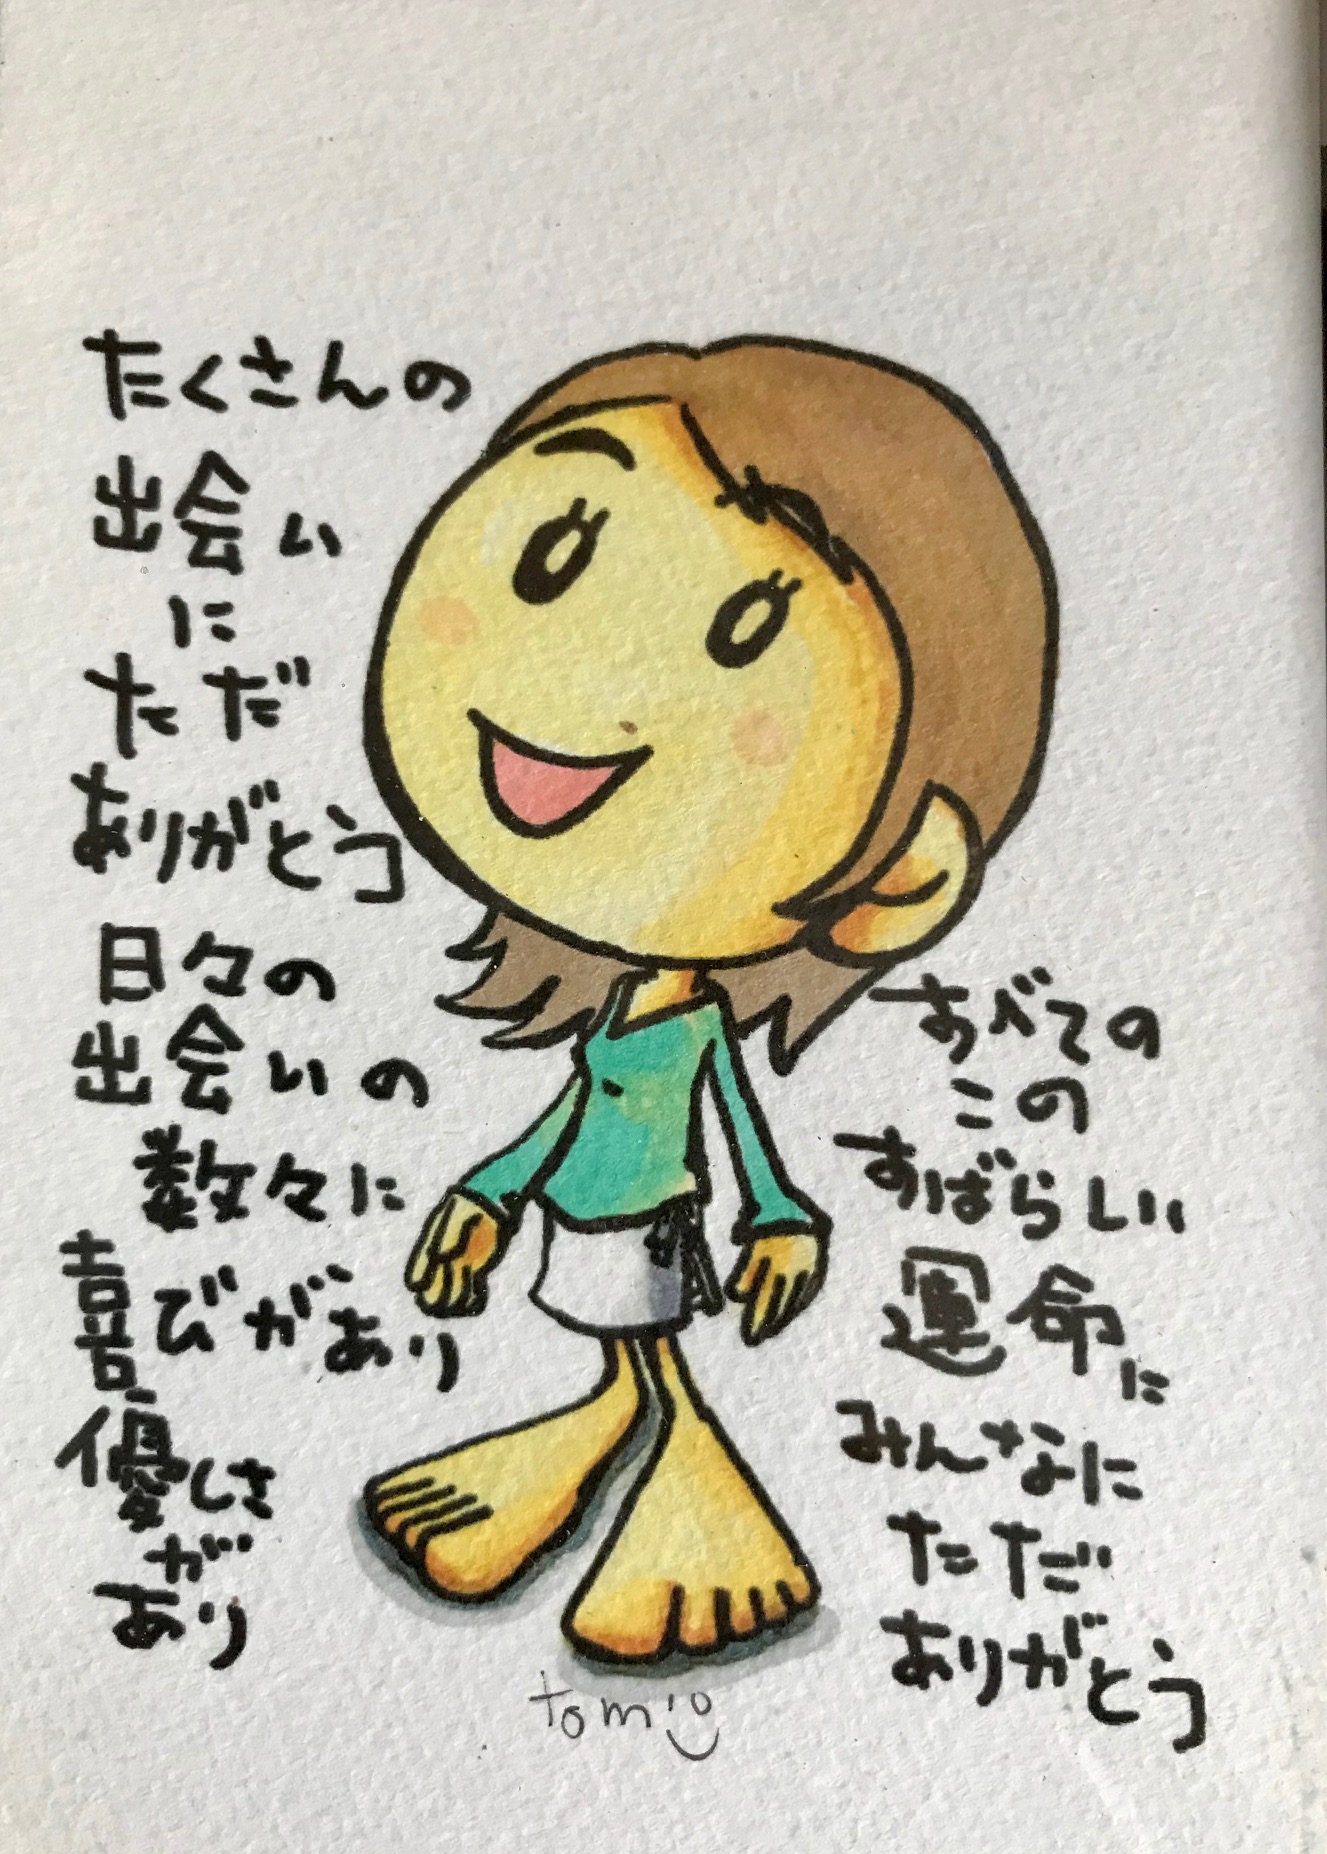 たくさんの
出会い
に
ただ
ありがとう
日々の
出会いの
数々に
喜びがあり
優しさ
が
あり
すべての
この
すばらしい
運命に
みんなに
ただ
ありがとう
tomio